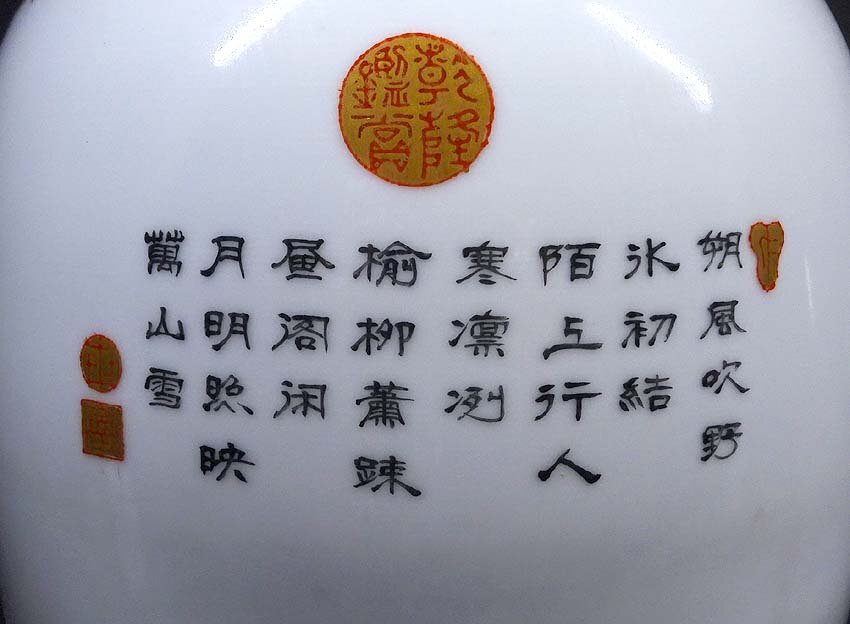 乾隆
鑑賞
朔風吹野
氷初結
陌上行人
寒凛冽
榆柳蕭踈
昼阁闲
月明照映
萬山雪